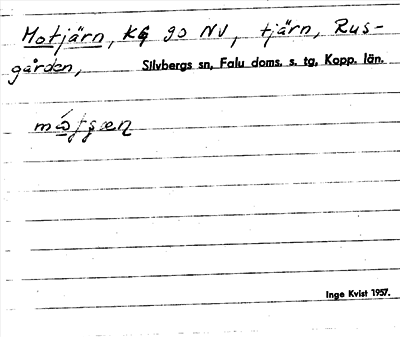 Motjärn, KG 90 NV, tjärn, Rus-
gården, Silvbergs sn, Falu doms. s. tg, Kopp. län.
Inge Kvist 1957.